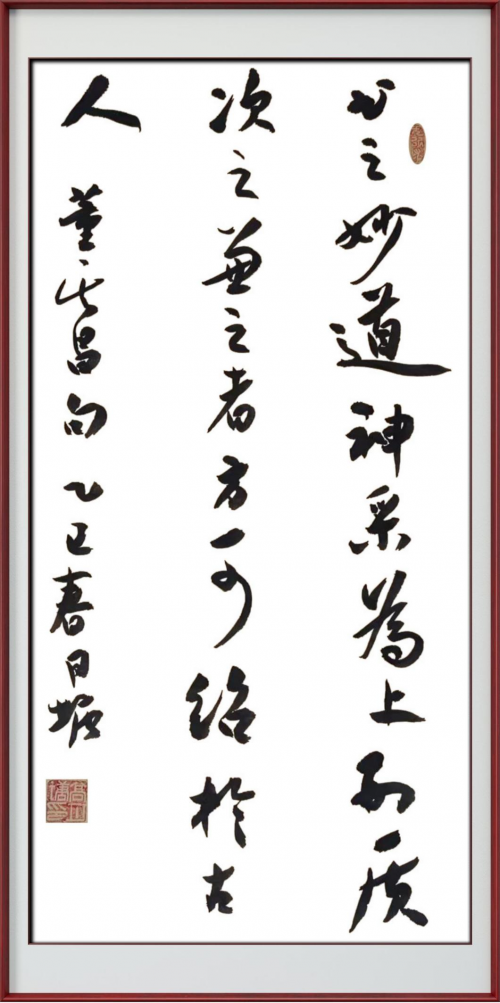 书之妙道神采為上形质
次之兼之者方可绍於古
人 董其昌句 乙巳春日